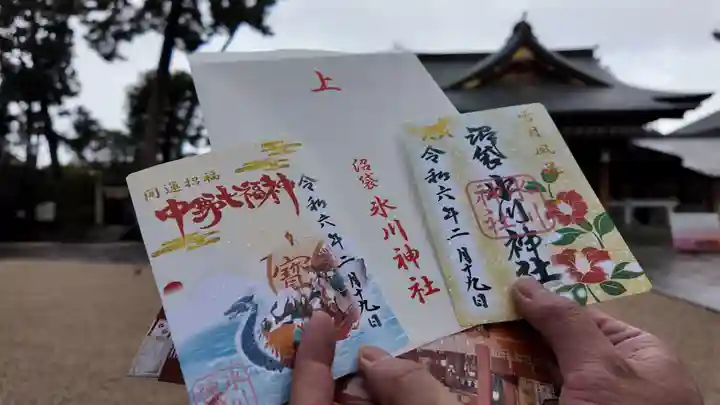 開運招福
中野七福神
寶
令和六年二月十九日
上
沼袋 氷川神社
沼袋 氷川神社
令和六年二月十九日